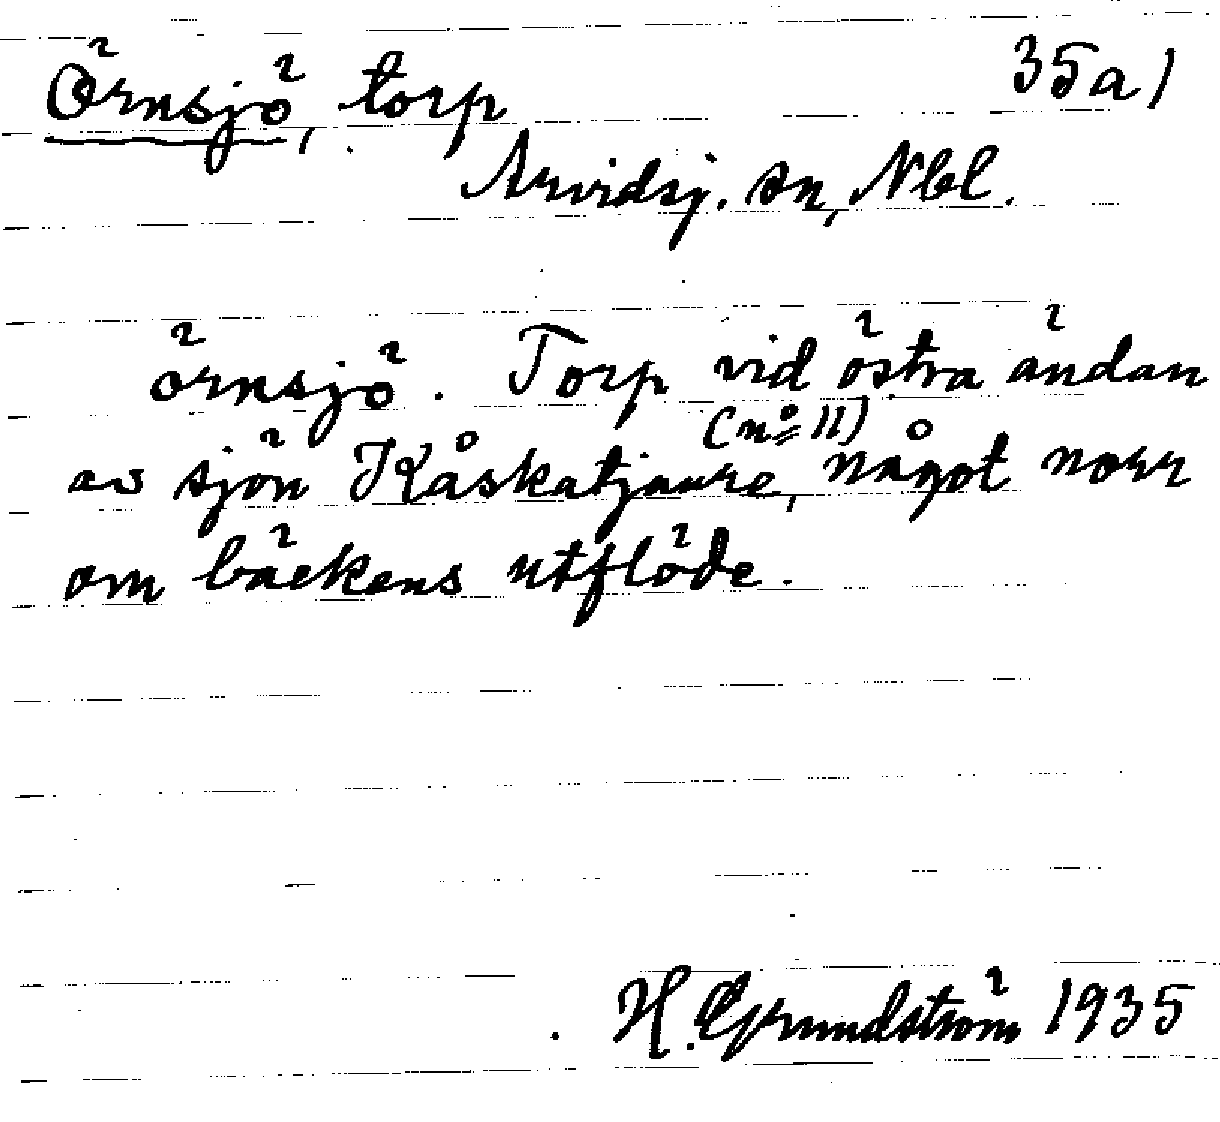 Örnsjö, torp 35a1
Arvidsj. sn, Nbl.
örnsjö. Torp vid östra ändan
(nº 11)
av sjön Kåskatjaure, något norr
om bäckens utflöde.
H. Grundström 1935